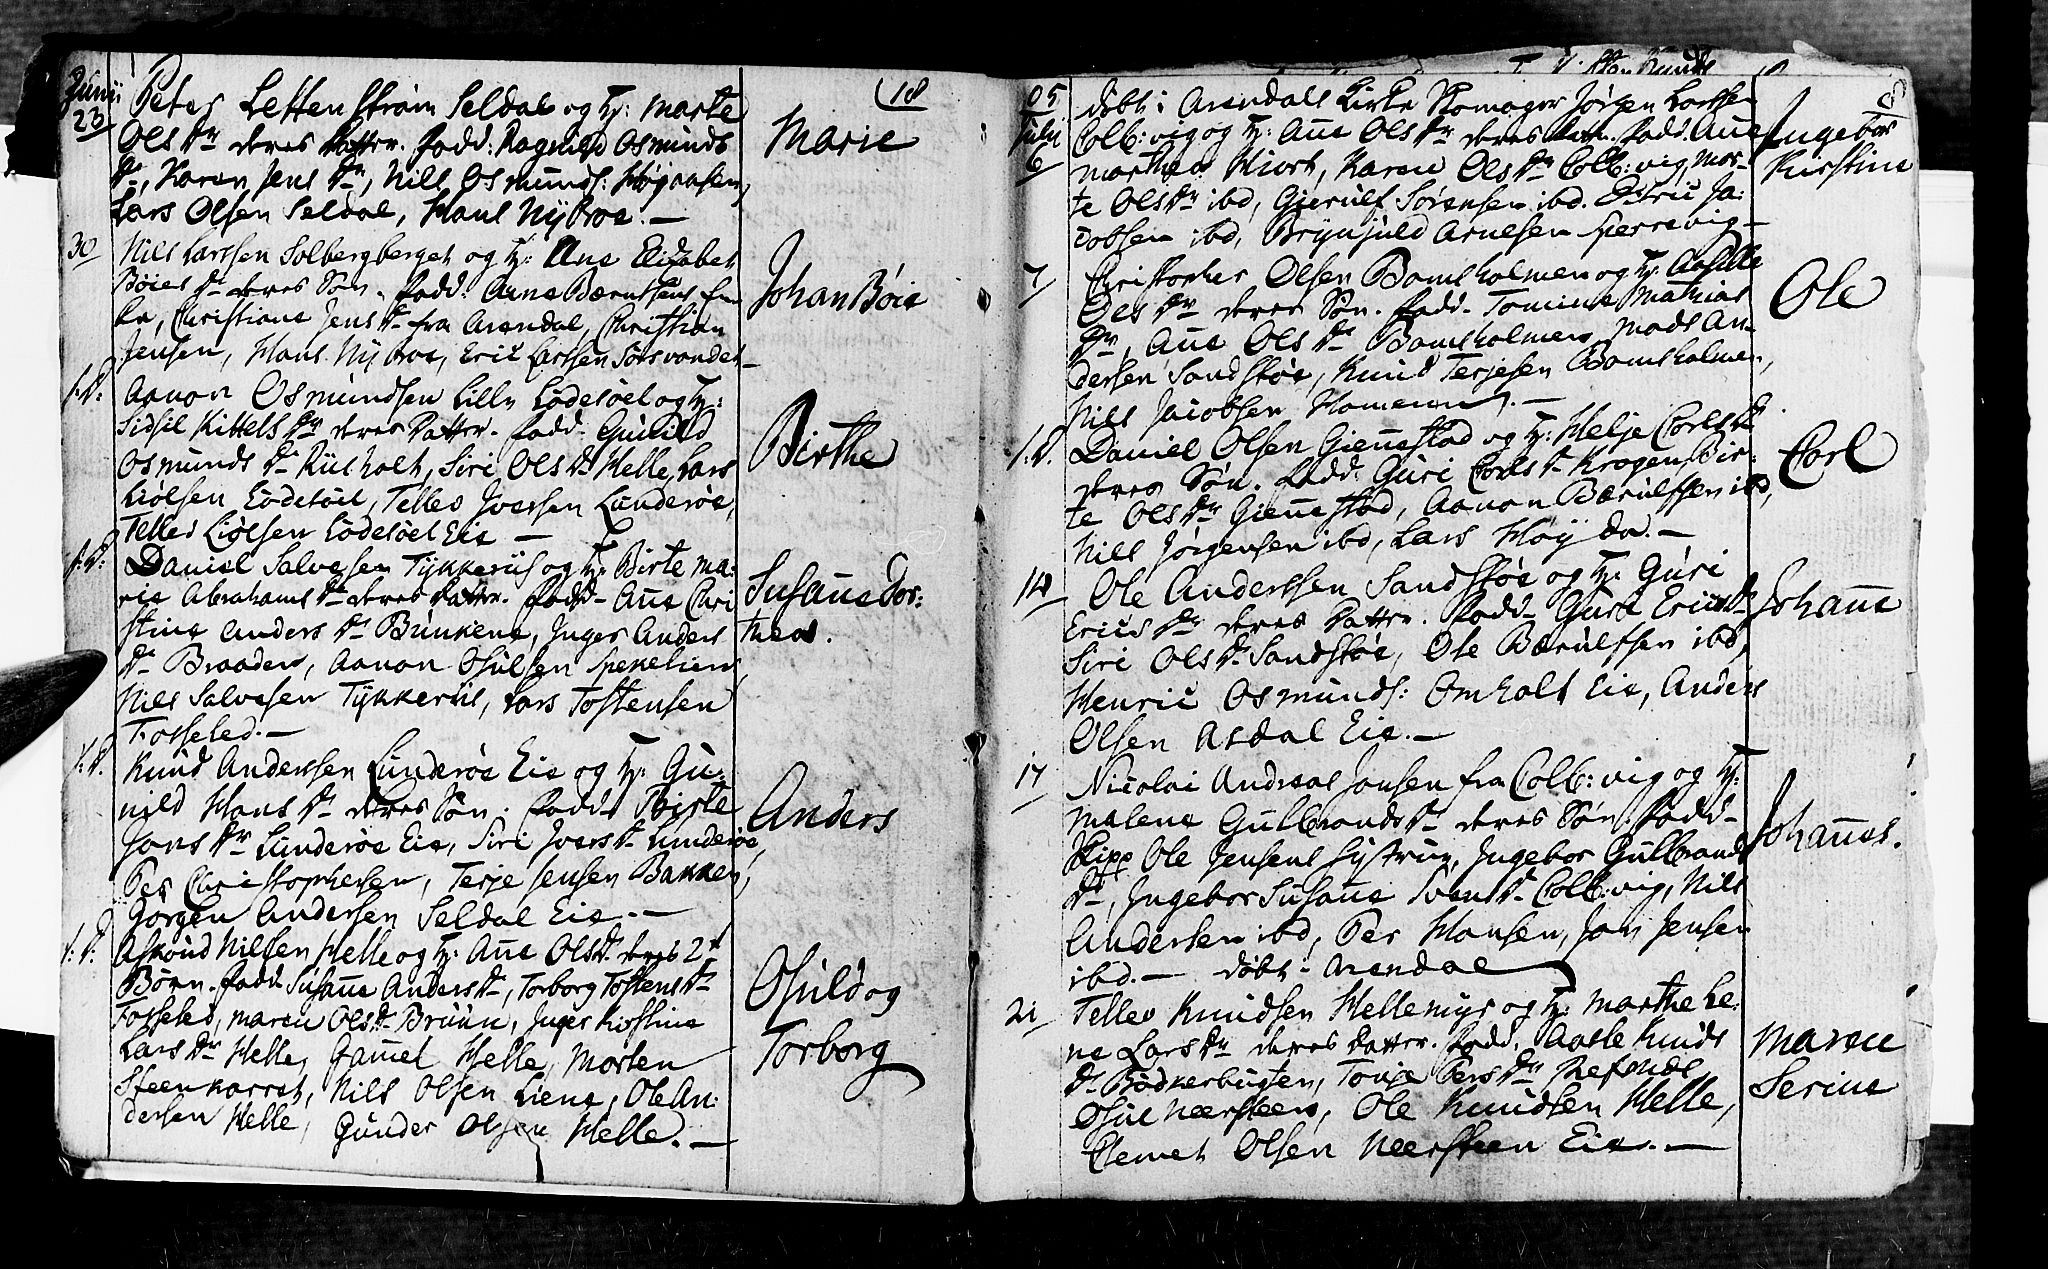 Junii
23
18
Peter Lettenstrøm Seldal og H: Marte
Ols Dr deres Datter. Fadd: Ragnild Osmunds
Dr, Karen Jens Dr, Nils Osmunds: Høgaasen,
Lars Olsen Seldal, Hans Nybroe. —
Marie
30
Nils Larssen Solbergberget og H: Ane Elisabet
Bøies Dr deres Søn. Fadd: Arne Bærntsens En
ke, Christiane Jens Dr fra Arendal, Christian
Jensen, Hans Nybroe, Eric Larssen Sørsvandet —
Johan Bøie
s. D.
Aanon Osmundsen Lille Lødesøel og H:
Sidsil Kittels Dr deres Datter. Fadd: Gunild
Osmunds Dr Riisholt, Siri Ols Dr Helle, Lars
Liølsen Lødesøel, Tellev Iversen Lunderøe,
Tellev Liølsen Lødesøel Eie —
Birthe
s. D.
Daniel Salvesen Tykkeriis og H: Birte Ma:
rie Abrahams Dr deres Datter. Fadd: Ane Chri
stine Anders Dr Bunkene, Inger Anders
Dr Braaden, Aanon Osulsen Spekelien
Nils Salvesen Tykkeriis, Lars Tostensen
Fosseled. —
Susane Dor:
thea.
s. D.
Knud Anderssen Lunderøe Eie og H: Gu:
nild Hans Dr deres Søn. Fadd: Birte
Jons Dr Lunderøe Eie, Siri Ivers Dr Lunderøe,
Per Christophersen, Terje Jensen Bakken,
Jørgen Andersen Seldal Eie. —
Anders
s. D.
Asmund Nilsen Helle og H: Ane Ols Dr deres 2de
Børn. Fadd: Susane Anders Dr, Torborg Tostens Dr
Fosseled, Maren Ols Dr Bruun, Inger Kirstine
Lars Dr Helle, Gamel Helle, Morten
Steenkarret, Nils Olsen Liene, Ole An:
dersen Helle, Gunder Olsen Helle. —
Osuld og
Torborg
05
Julii
6
døbt i Arendals Kirke Skomager Jørgen Larssen
Colb: vig og H: Ane Ols Dr deres Fadd: Ane
Marthea Hiort, Karen Ols Dr Colb: vig, Mar-
te Ols Dr ibd, Gierulf Sørensen ibd. Estric Ja:
cobsen ibd, Brynjuld Arnesen Sperrevig —
Ingebor
Kirstine
7
Christopher Olsen Bomsholmen og H: Aasille
Ols Dr deres Søn. Fadd: Tomine Mathias
Dr, Ane Ols Dr Bomsholmen, Mads An-
dersen Sandstøe, Knud Terjesen Bomsholmen,
Nils Jacobsen Homeren. —
Ole
s. D.
Daniel Olsen Gienestad og H: Helje Carls Dr
deres Søn. Fadd: Guri Carls Dr Krogen, Bir-
te Ols Dr Gienestad, Aanon Bærulfsen ibd,
Nils Jørgensen ibd, Lars Høyda. —
Carl
14
Ole Anderssen Sandstøe og H: Guri
Erics Dr deres Datter. Fadd: Guri Erics Dr
Siri Ols Dr Sandstøe, Ole Bærulfsen ibd,
Henric Osmunds: Omholt Eie, Anders
Olsen Asdal Eie. —
Johane
17
Nicolai Andreas Jansen fra Colb: vig og H:
Malene Gulbrands Dr deres Søn. Fadd:
Skipp Ole Jensens Hystrue, Ingebor Gulbrands
Dr, Ingebor Susane Svens Dr Colb: vig, Nils
Andersen ibd, Per Hansen, Jon Jensen
ibd. — døbt i Arendal
Johanes.
21
Tellev Knudsen Hellemyr og H: Marthe Le:
ne Lars Dr deres Datter. Fadd: Aasle Knuds
Dr Bødkerbugten, Tonje Pers Dr Refsnes
Osul Neersteen, Ole Knudsen Helle,
Clemet Olsen Neersteen Eie. —
Maren
Serine